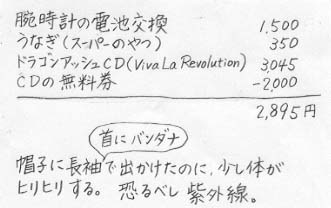 腕時計の電池交換 1,500
うなぎ(スーパーのやつ) 350
ドラゴンアッシュCD(Viva La Revolution) 3,045
CDの無料券 -2,000
2,895円
首にバンダナ
帽子に長袖で出かけたのに、少し体が
ヒリヒリする。恐るべし紫外線。